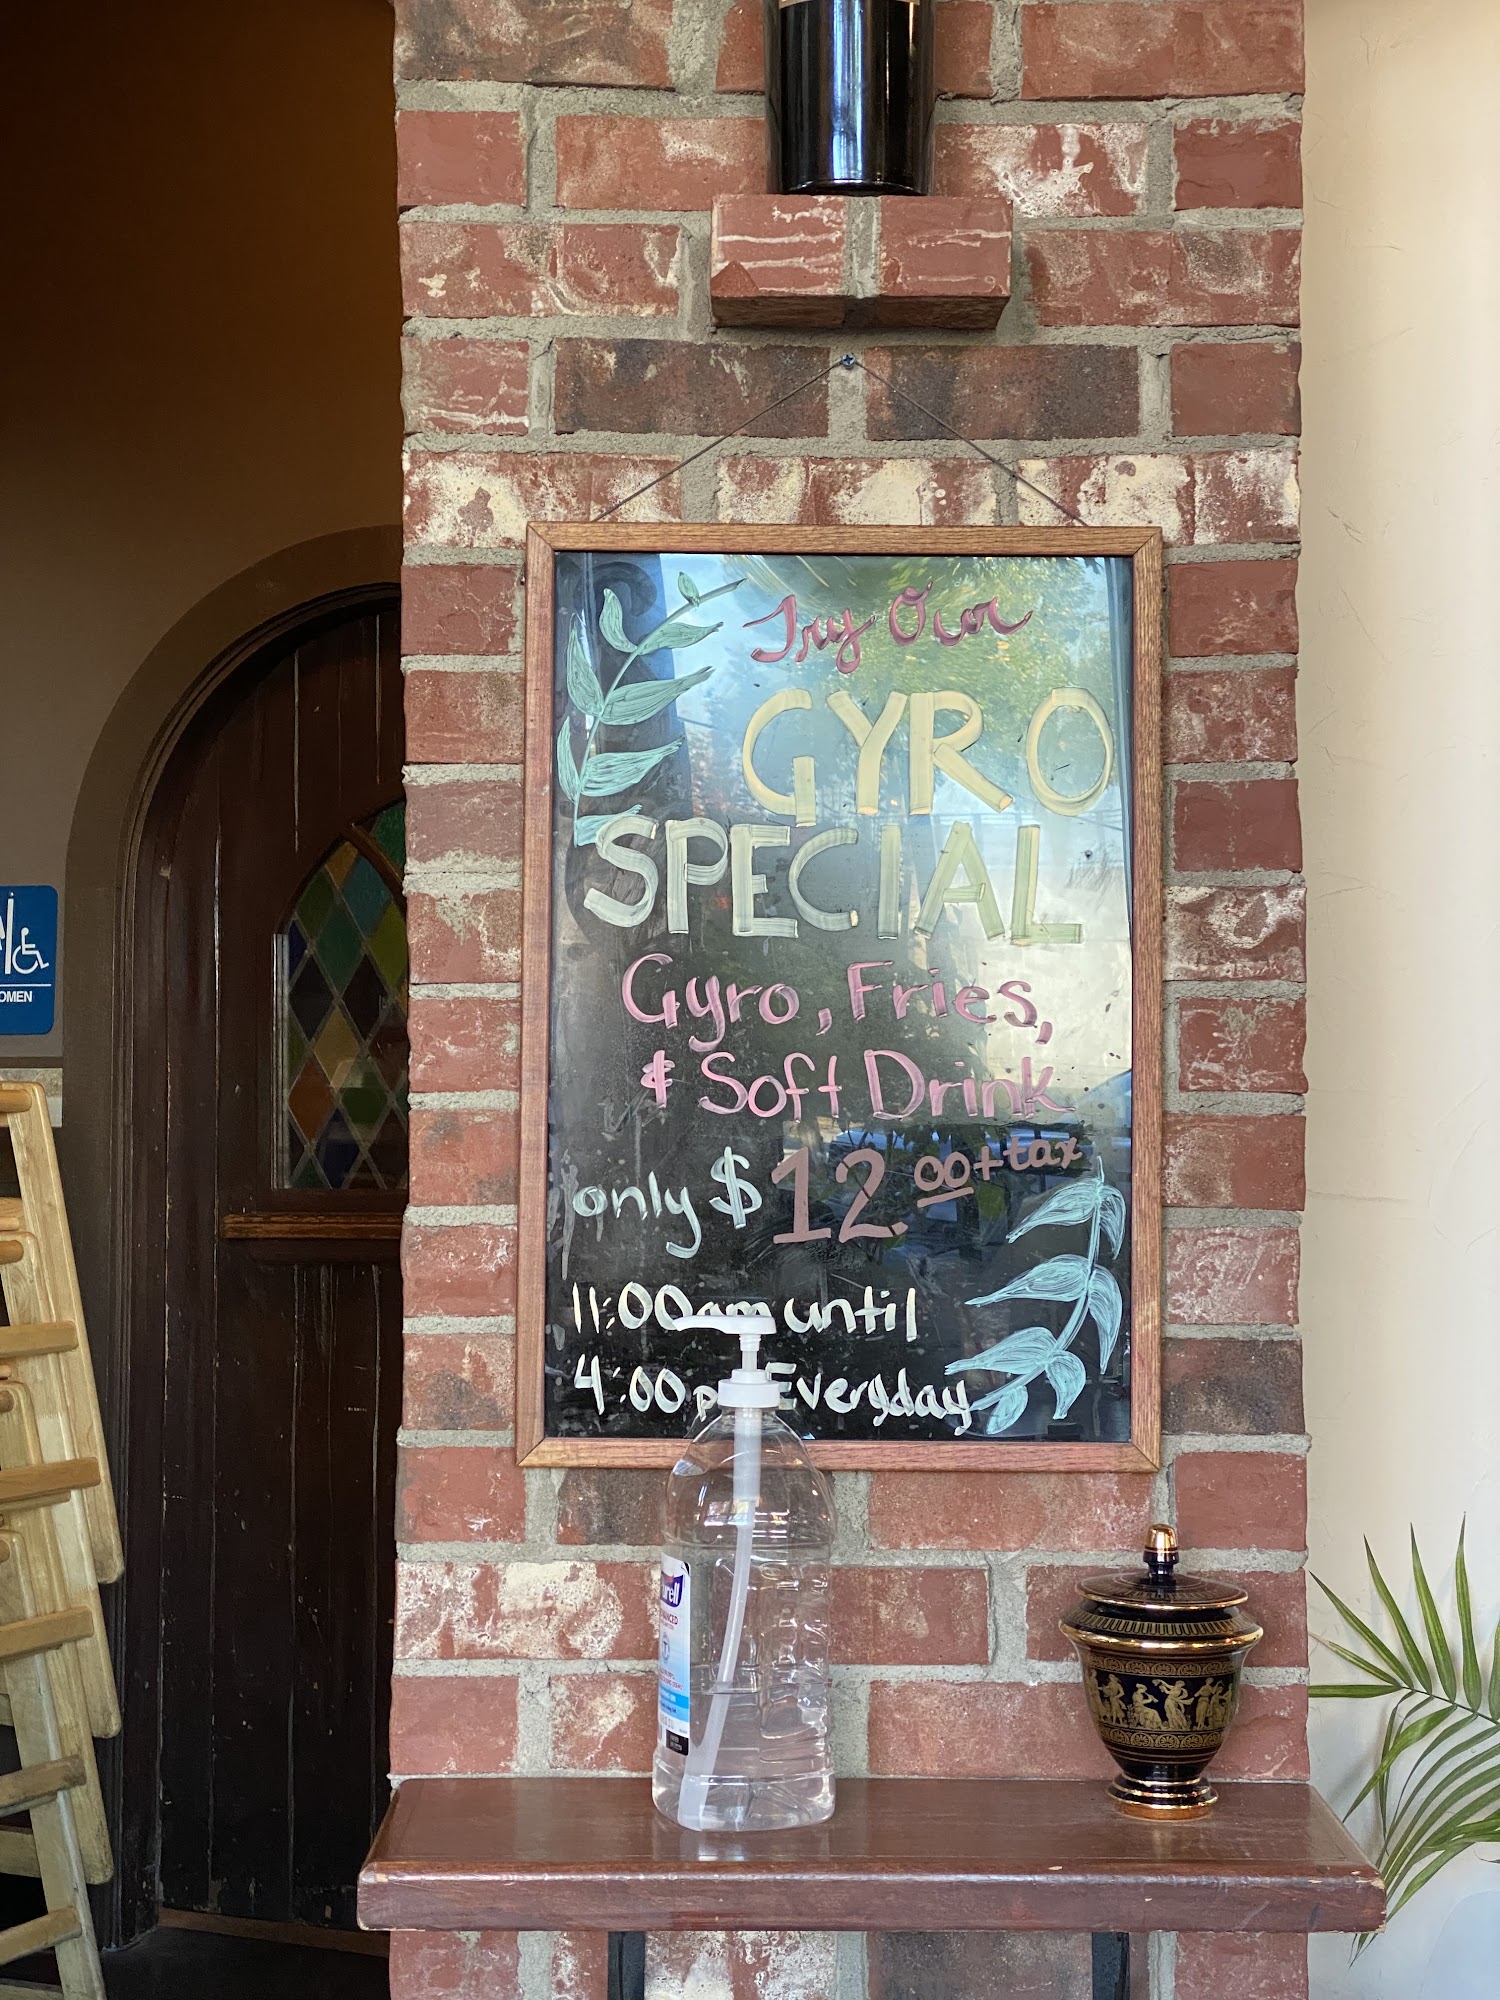 Try Our
GYRO
SPECIAL
Gyro, Fries,
& Soft Drink
only $12.00 + tax
11:00am until
4:00p Everyday
OMEN